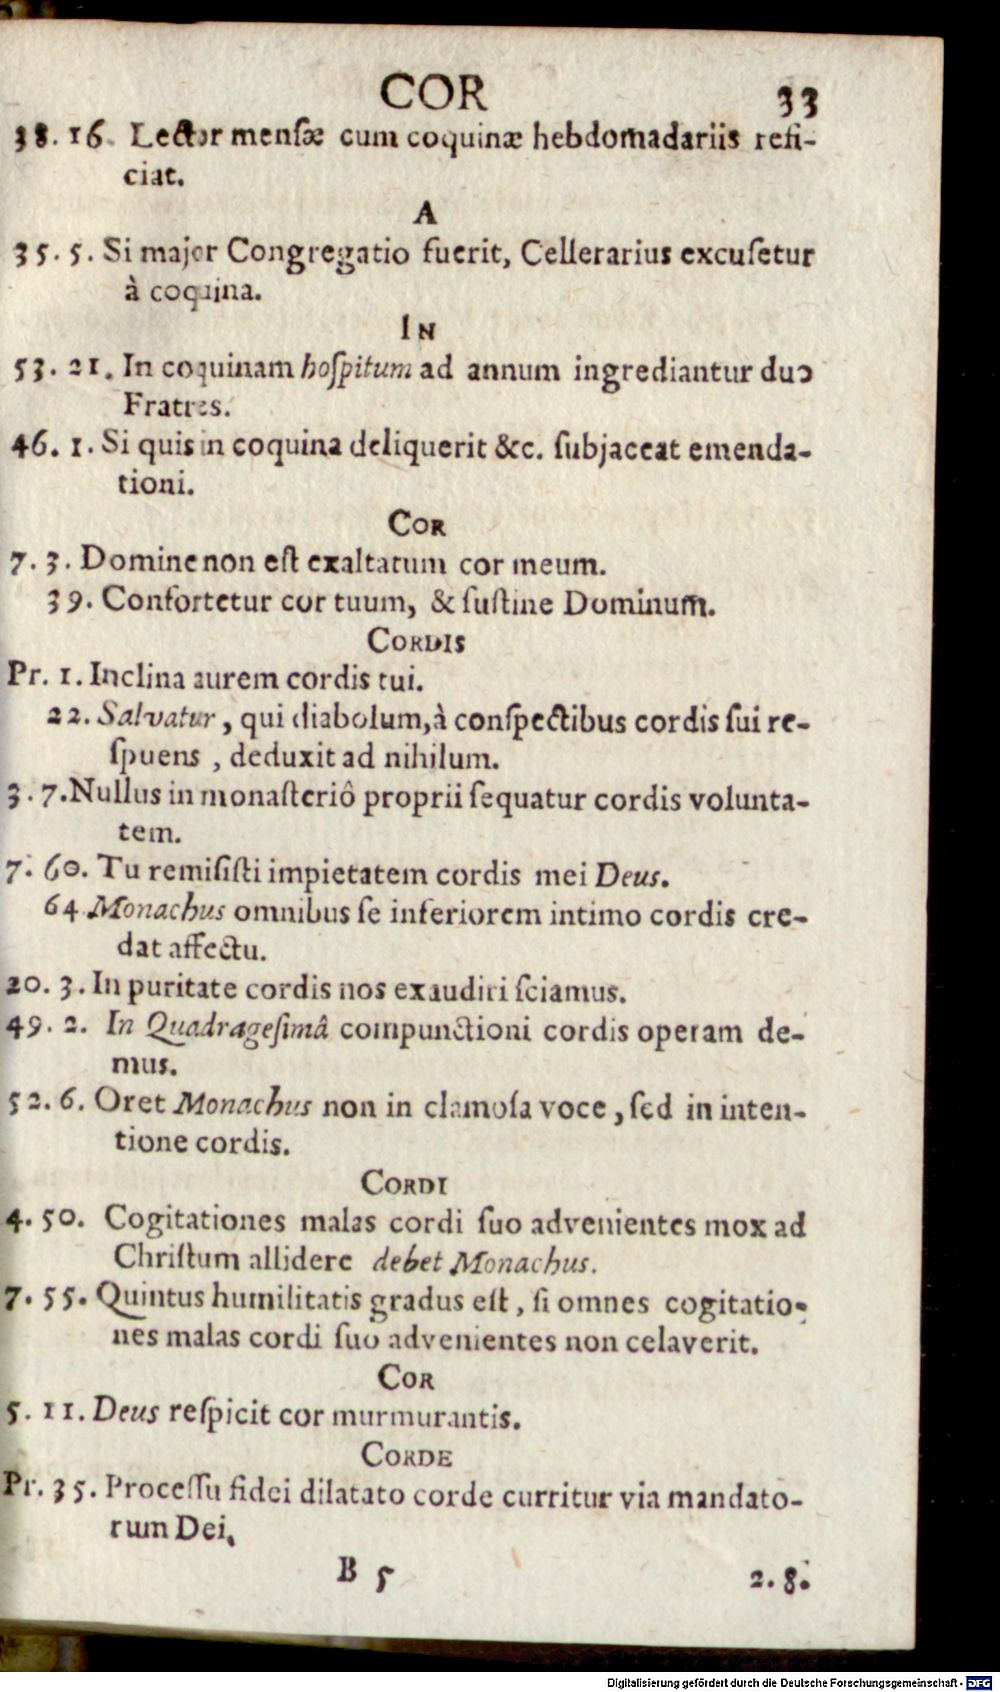 COR 33
38. 16. Lector mensæ cum coquinæ hebdomadariis refi-
ciat.
A
35. 5. Si major Congregatio fuerit, Cellerarius excuſetur
à coquina.
IN
53. 21. In coquinam hoſpitum ad annum ingrediantur duo
Fratres.
46. 1. Si quis in coquina deliquerit &c. ſubjaceat emenda-
tioni.
COR
7. 3. Domine non eſt exaltatum cor meum.
39. Confortetur cor tuum, & ſuſtine Dominum.
CORDIS
Pr. 1. Inclina aurem cordis tui.
22. Salvatur, qui diabolum, à conſpectibus cordis ſui re-
ſpuens, deduxit ad nihilum.
3. 7. Nullus in monaſteriô proprii ſequatur cordis volunta-
tem.
7. 60. Tu remiſiſti impietatem cordis mei Deus.
64. Monachus omnibus ſe inferiorem intimo cordis cre-
dat affectu.
20. 3. In puritate cordis nos exaudiri ſciamus.
49. 2. In Quadrageſimâ compunctioni cordis operam de-
mus.
52. 6. Oret Monachus non in clamoſa voce, ſed in inten-
tione cordis.
CORDI
4. 50. Cogitationes malas cordi ſuo advenientes mox ad
Chriſtum allidere debet Monachus.
7. 55. Quintus humilitatis gradus eſt, ſi omnes cogitatio-
nes malas cordi ſuo advenientes non celaverit.
COR
5. 11. Deus reſpicit cor murmurantis.
CORDE
Pr. 35. Proceſſu fidei dilatato corde curritur via mandato-
rum Dei.
B 5 2. 8.
Digitalisierung gefördert durch die Deutsche Forschungsgemeinschaft - DFG